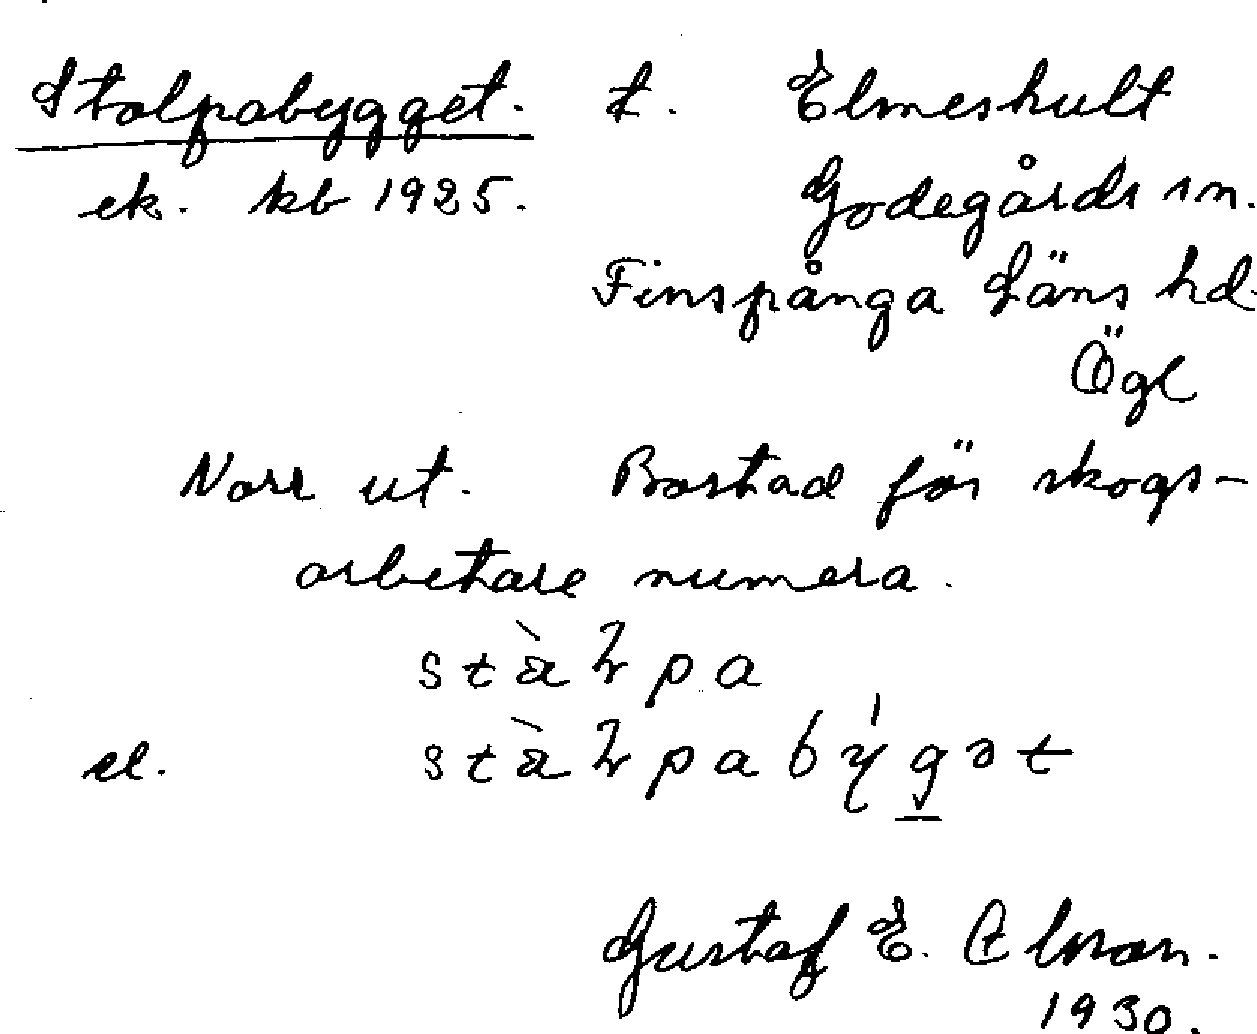 Stolpabygget. t. Elmeshult
ek. kb 1925. Godegårds sn.
Finspånga Läns hd.
Ögl
Norr ut. Bostad för skogs-
arbetare numera.
el.
Gustaf E.
1930.